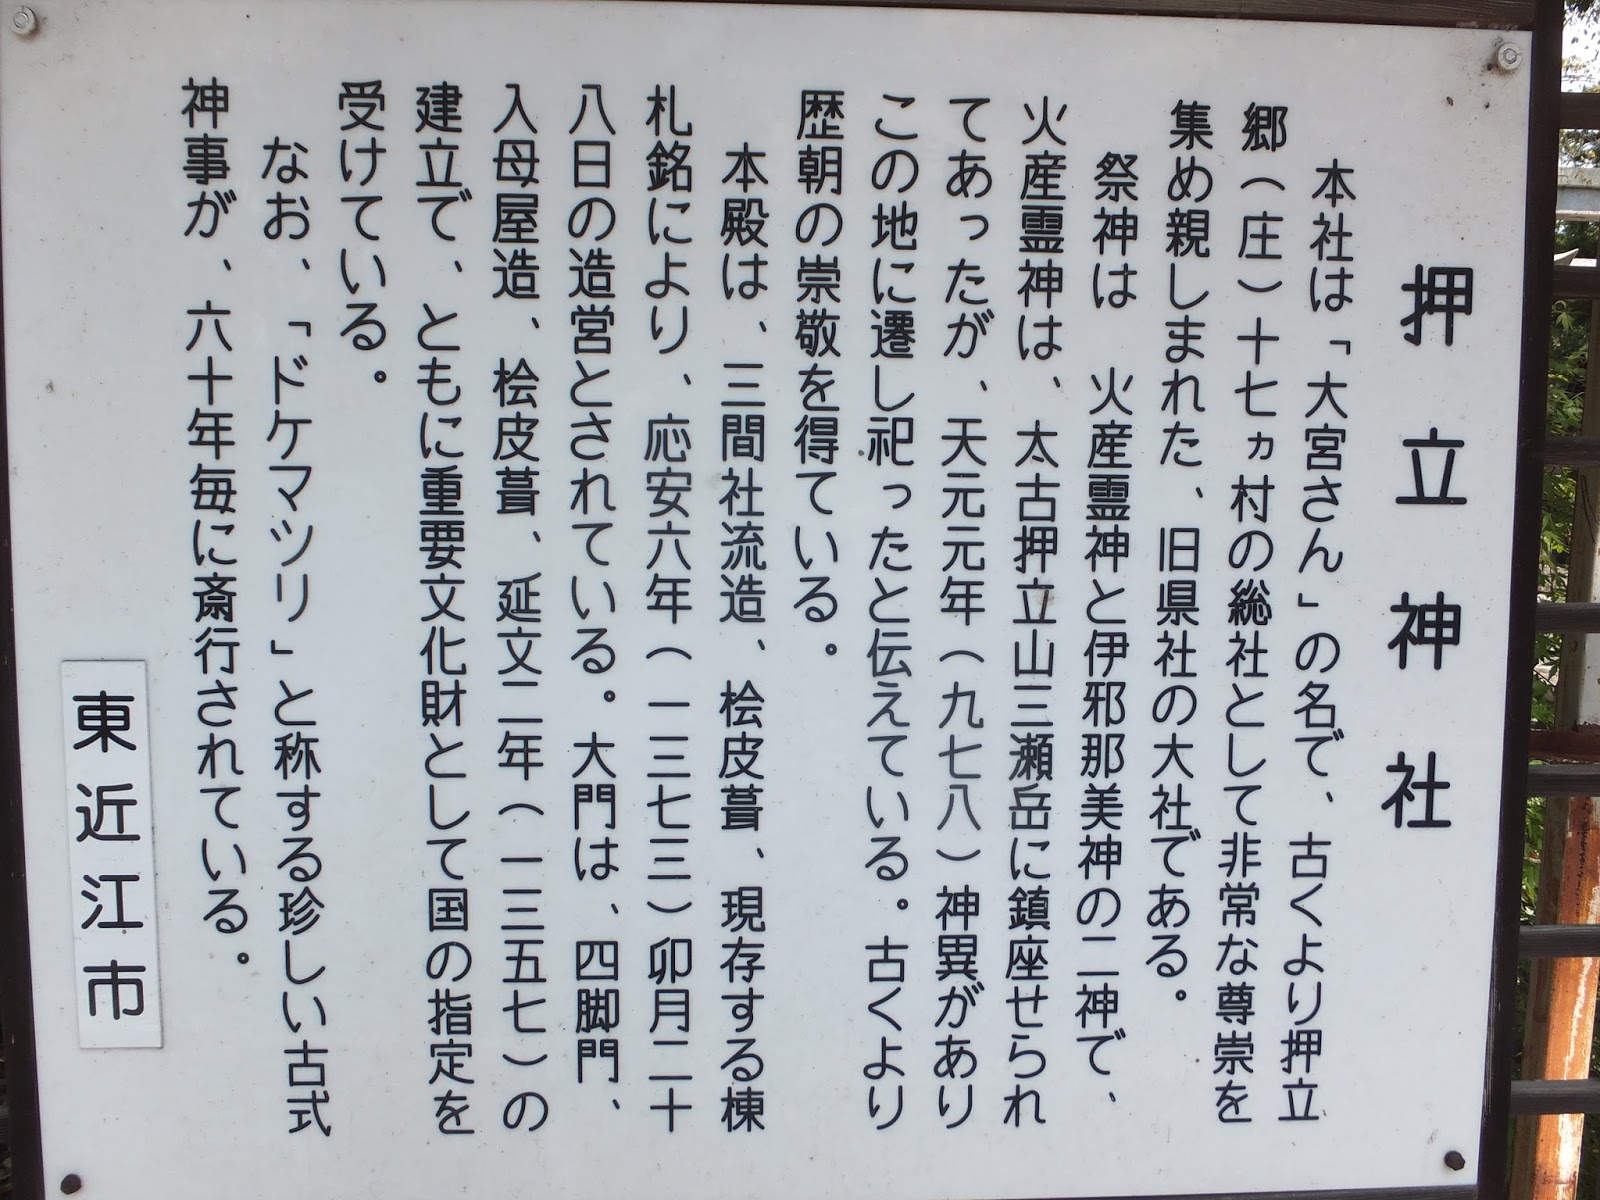 押立神社
本社は「大宮さん」の名で、古くより押立
郷（庄）十七ヵ村の総社として非常な尊崇を
集め親しまれた、旧県社の大社である。
祭神は　火産霊神と伊邪那美神の二神で、
火産霊神は、太古押立山三瀬岳に鎮座せられ
てあったが、天元元年（九七八）神異があり
この地に遷し祀ったと伝えている。古くより
歴朝の崇敬を得ている。
本殿は、三間社流造、桧皮葺、現存する棟
札銘により、応安六年（一三七三）卯月二十
八日の造営とされている。大門は、四脚門、
入母屋造、桧皮葺、延文二年（一三五七）の
建立で、ともに重要文化財として国の指定を
受けている。
なお、「ドケマツリ」と称する珍しい古式
神事が、六十年毎に斎行されている。
東近江市